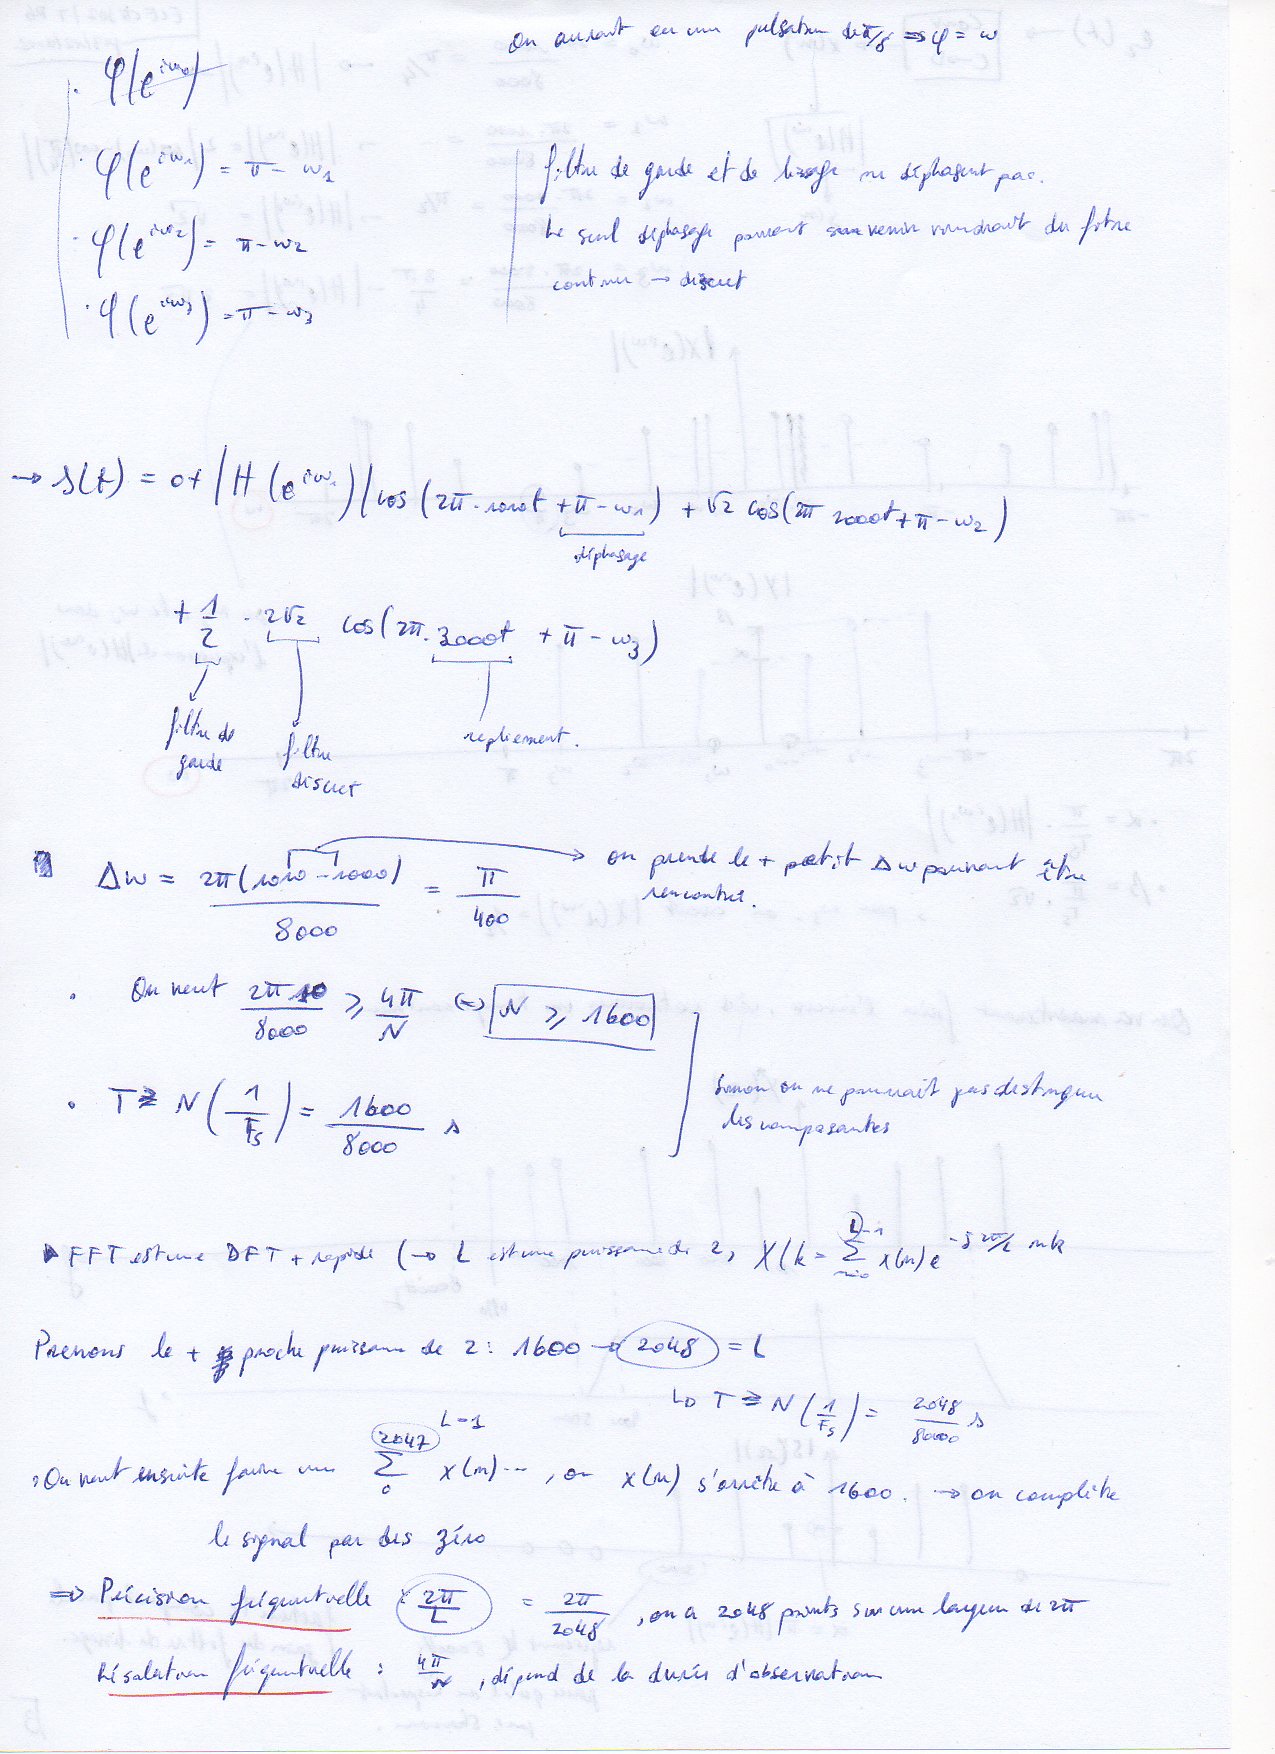 On aurait eu une pulsation de π/8 => φ = w
φ(e^{iw0})
· φ(e^{iw1}) = π - w1
· φ(e^{iw2}) = π - w2
· φ(e^{iw3}) = π - w3
filtre de garde et de lissage ne déphasent pas.
Le seul déphasage pouvant survenir viendrait du filtre
continu → discret
→ s(t) = 0 + |H(e^{iw1})| cos(2π·1010t + π - w1) + √2 cos(2π 2000t + π - w2)
déphasage
+ 1/2 · 2√2 cos(2π·3000t + π - w3)
filtre de garde
filtre discret
repliement.
Δw = 2π(1010 - 1000)/8000 = π/400
on prends le + petit Δw pouvant être
rencontré.
· On veut 2π10/8000 ≥ 4π/N (=) N ≥ 1600
· T ≥ N(1/Fs) = 1600/8000 s
Sinon on ne pourrait pas distinguer
les composantes
FFT est une DFT + rapide (→ L est une puissance de 2, X(k = Σ_{n=0}^{L-1} x(n) e^{-j 2π/L nk}
Prenons le + proche puissance de 2 : 1600 → 2048 = L
↳ T ≥ N(1/Fs) = 2048/8000 s
L-1
· On veut ensuite faire une Σ_0^{2047} x(n)..., or x(n) s'arrête à 1600. → on complète
le signal par des zéro
=> Précision fréquentielle : 2π/L = 2π/2048, on a 2048 points sur une largeur de 2π
Résolution fréquentielle : 4π/N, dépend de la durée d'observation